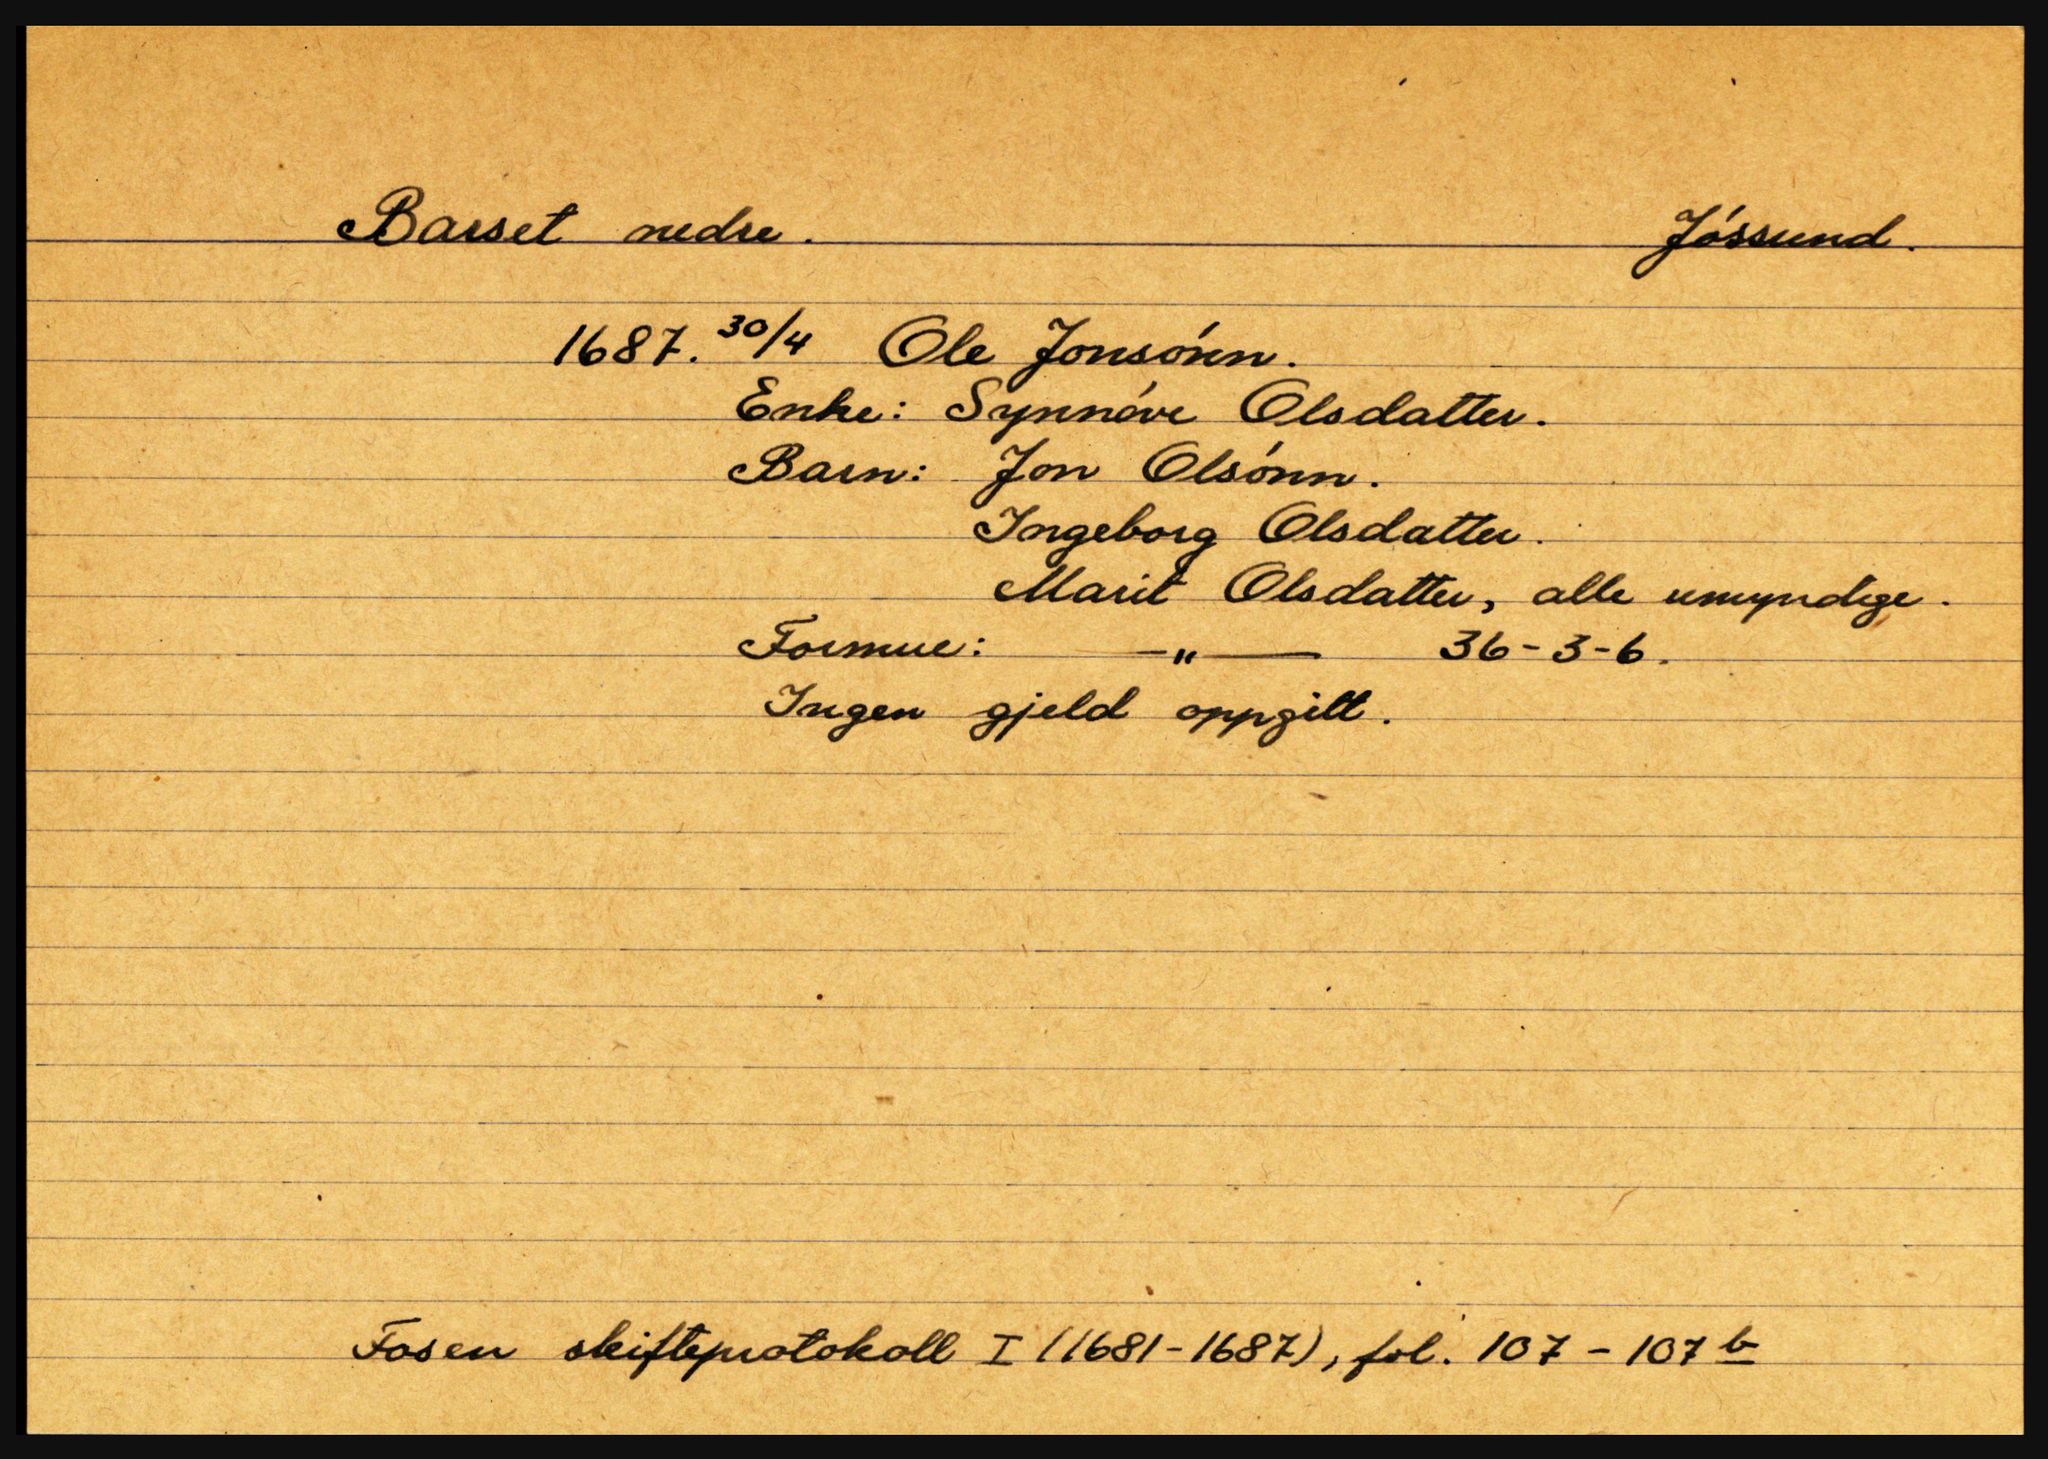 Barset nedre. Jóssund.
1687. 30/4 Ole Jonsónn.
Enke: Synnóve Olsdatter.
Barn: Jon Olsónn.
Ingeborg Olsdatter.
Marit Olsdatter, alle umyndige.
Formue: —"— 36-3-6.
Ingen gjeld oppgitt.
Fosen skifteprotokoll I (1681-1687), fol. 107-107b